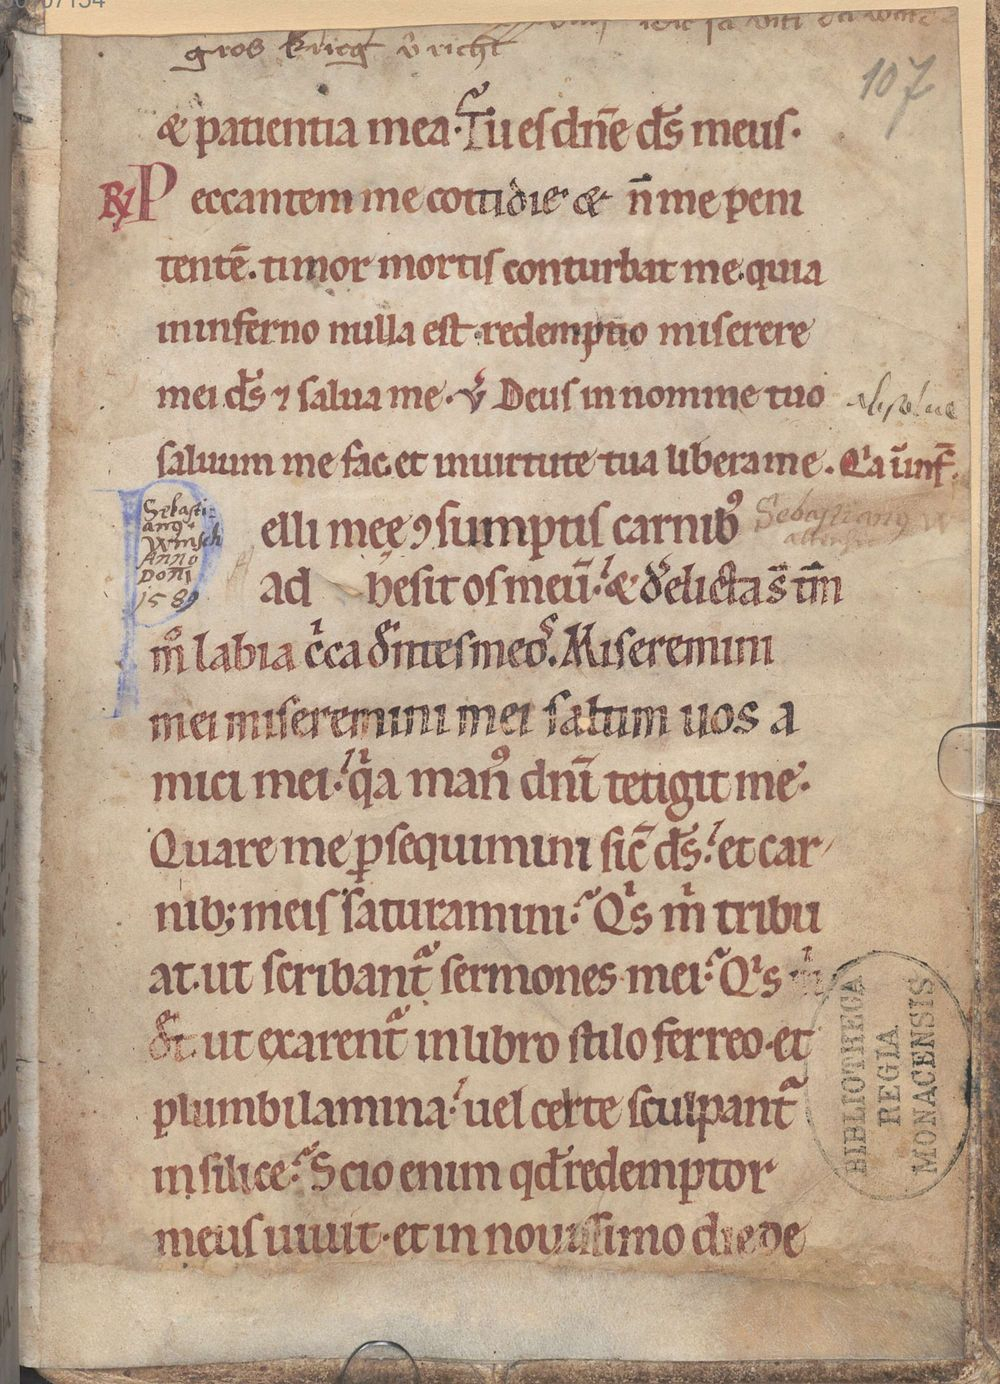 gros krieg v̄ richt
107
& patientia mea. Tu es dn̄e ds̄ meus.
R̷ Peccantem me cottidie & n̄ me peni
tentē. timor mortis conturbat me. quia
in inferno nulla est redemptio miserere
mei ds̄ ⁊ salua me. v̄ Deus in nomine tuo
saluum me fac. et in uirtute tua libera me. Qͥa ū inf̄.
Pelli meę ꝯsumptis carnibꝰ
Sebasti=
anꝰ
Winsch
Anno
Doni
1589
Sebastianꝰ
adhesit os meū. & d̄elicta s̄ t̄m
m̊ labia cͥca dn̄tes meoˢ. Miseremini
mei miseremini mei saltum uos a
mici mei. qͥa manꝰ dn̄i tetigit me.
Quare me ꝑsequimini sic̄ ds̄. et car
nibꝫ meis saturamini. Qͥs m̄ tribu
at. ut scribant᷑ sermones mei. Qͥs m̄
d̄t ut exarent᷑ in libro stilo ferreo. et
plumbi lamina. uel certe sculpant᷑
in silice. Scio enim qd̄ redemptor
meus uiuit. et in nouissimo die de
BIBLIOTHECA
REGIA
MONACENSIS